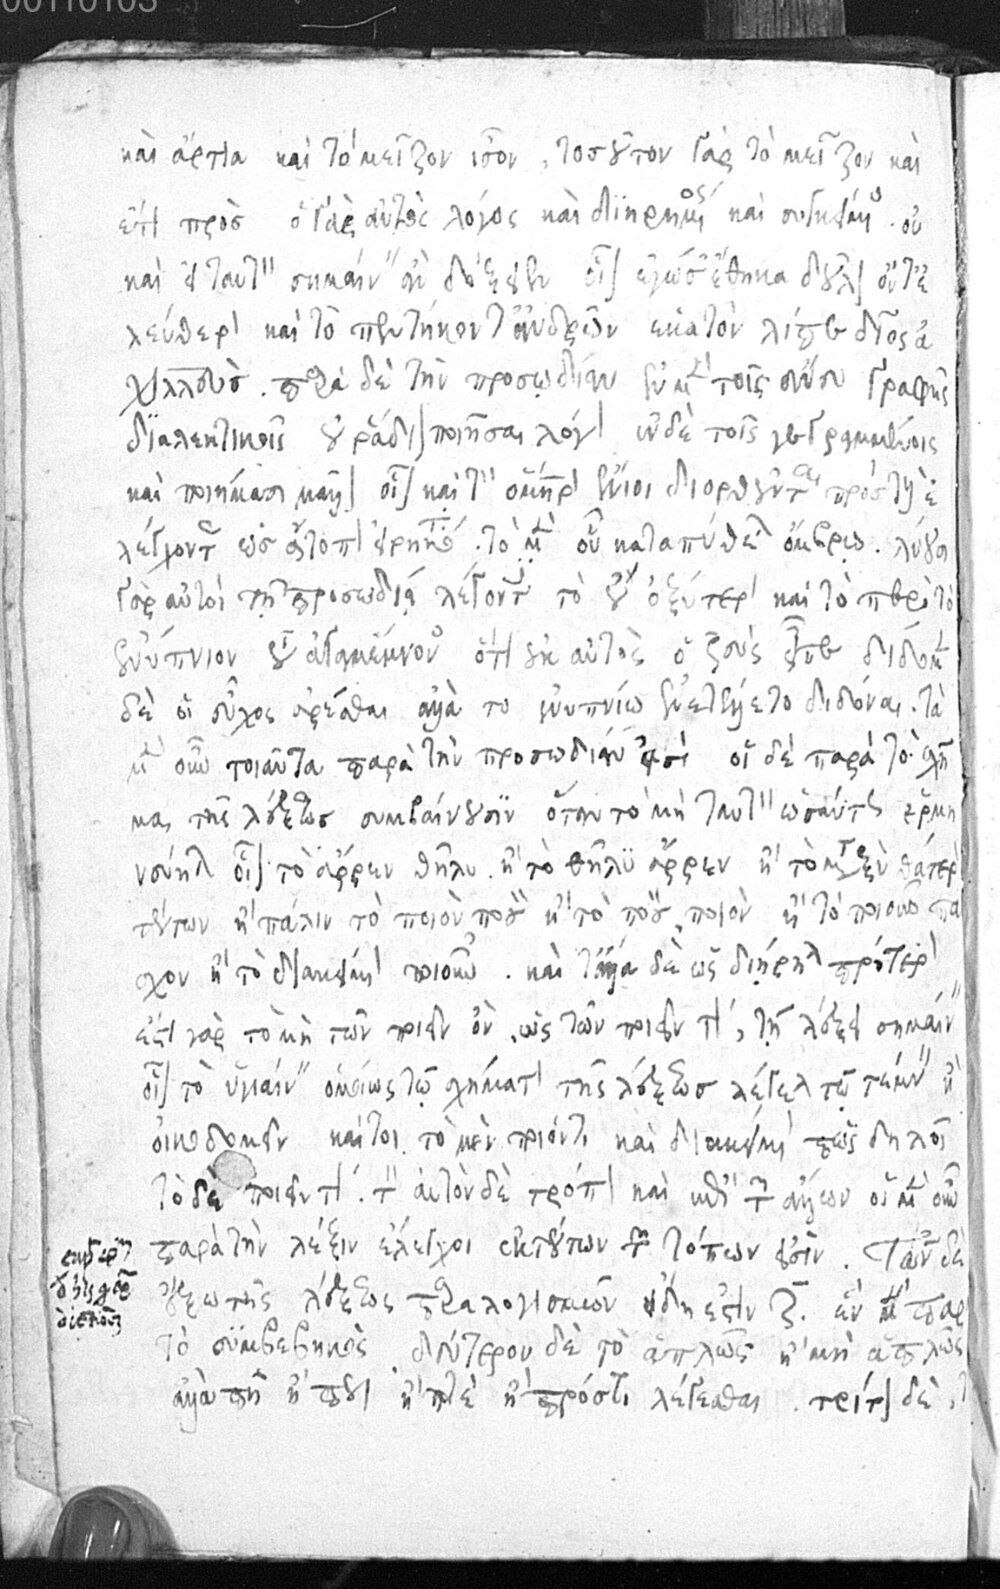 00110103
καὶ ἄρτια καὶ τὸ μεῖζον ἴσον, τοσοῦτον γὰρ τὸ μεῖζον καὶ
ἔτι πρὸς ὁ γὰρ αὐτὸς λόγος καὶ διῃρημένος καὶ συγκείμενος. οὐ
καὶ ταυτὸ σημαίνειν ἂν δόξειεν οἷον ἐγώ σ' ἔθηκα δοῦλον ὄντ' ἐ
λεύθερον καὶ τὸ πεντήκοντ' ἀνδρῶν ἑκατὸν λίπε δῖος ἀ
χιλλεύς. παρὰ δὲ τὴν προσωδίαν ἐν μὲν τοῖς ἄνευ γραφῆς
διαλεκτικοῖς οὐ ράδιον ποιῆσαι λόγον ἐν δὲ τοῖς γεγραμμένοις
καὶ ποιήμασι μᾶλλον οἷον καὶ τὸν ὅμηρον ἔνιοι διορθοῦνται πρὸς τοὺς ἐ
λέγχοντας ὡς ἀτόπως εἰρηκότα. τὸ μὲν οὗ καταπύθεται ὄμβρω. λύουσι
γὰρ αὐτὸ τῆ προσωδία λέγοντες τὸ οὐ ὀξύτερον καὶ τὸ περὶ τὸ
ἐνύπνιον τοῦ ἀγαμέμνονος ὅτι οὐκ αὐτὸς ὁ ζεὺς εἶπε δίδομεν
δέ οἱ εὖχος ἀρέσθαι ἀλλὰ τῶ ἐνυπνίω ἐνετέλλετο διδόναι. τὰ
μὲν οὖν τοιαῦτα παρὰ τὴν προσωδίαν ἐστὶ οἱ δὲ παρὰ τὸ σχῆ
μα τῆς λέξεως συμβαίνουσιν ὅταν τὸ μὴ ταυτὸ ὡσαύτως ἑρμη
νεύηται οἷον τὸ ἄρρεν θῆλυ. ἢ τὸ θῆλυ ἄρρεν ἢ τὸ μεταξὺ θάτερον
τούτων ἢ πάλιν τὸ ποιὸν ποσὸν ἢ τὸ ποσὸν ποιὸν ἢ τὸ ποιοῦν πά
σχον ἢ τὸ διακείμενον ποιοῦν. καὶ τἄλλα δὲ ὡς διήρηται πρότερον
ἔστι γὰρ τὸ μὴ τῶν ποιεῖν ὂν, ὡς τῶν ποιεῖν τί, τῆ λέξει σημαίνειν
οἷον τὸ ὑγιαίνειν ὁμοίως τῶ σχήματι τῆς λέξεως λέγεται τῶ τέμνειν ἢ
οἰκοδομεῖν καίτοι τὸ μὲν ποιόν τι καὶ διακείμενόν πως δηλοῖ
τὸ δὲ ποιεῖν τί. τὸν αὐτὸν δὲ τρόπον καὶ ἐπὶ τῶν ἄλλων οἱ μὲν οὖν
παρὰ τὴν λέξιν ἔλεγχοι ἐκ τούτων τῶν τόπων εἰσίν. Τῶν δὲ
ἔξω τῆς λέξεως παραλογισμῶν εἴδη ἐστὶν ζ. ἓν μὲν παρὰ
τὸ συμβεβηκὸς δεύτερον δὲ τὸ ἁπλῶς ἢ μὴ ἁπλῶς
ἀλλὰ πῆ ἢ ποῦ ἢ ποτὲ ἢ πρός τι λέγεσθαι. τρίτον δὲ